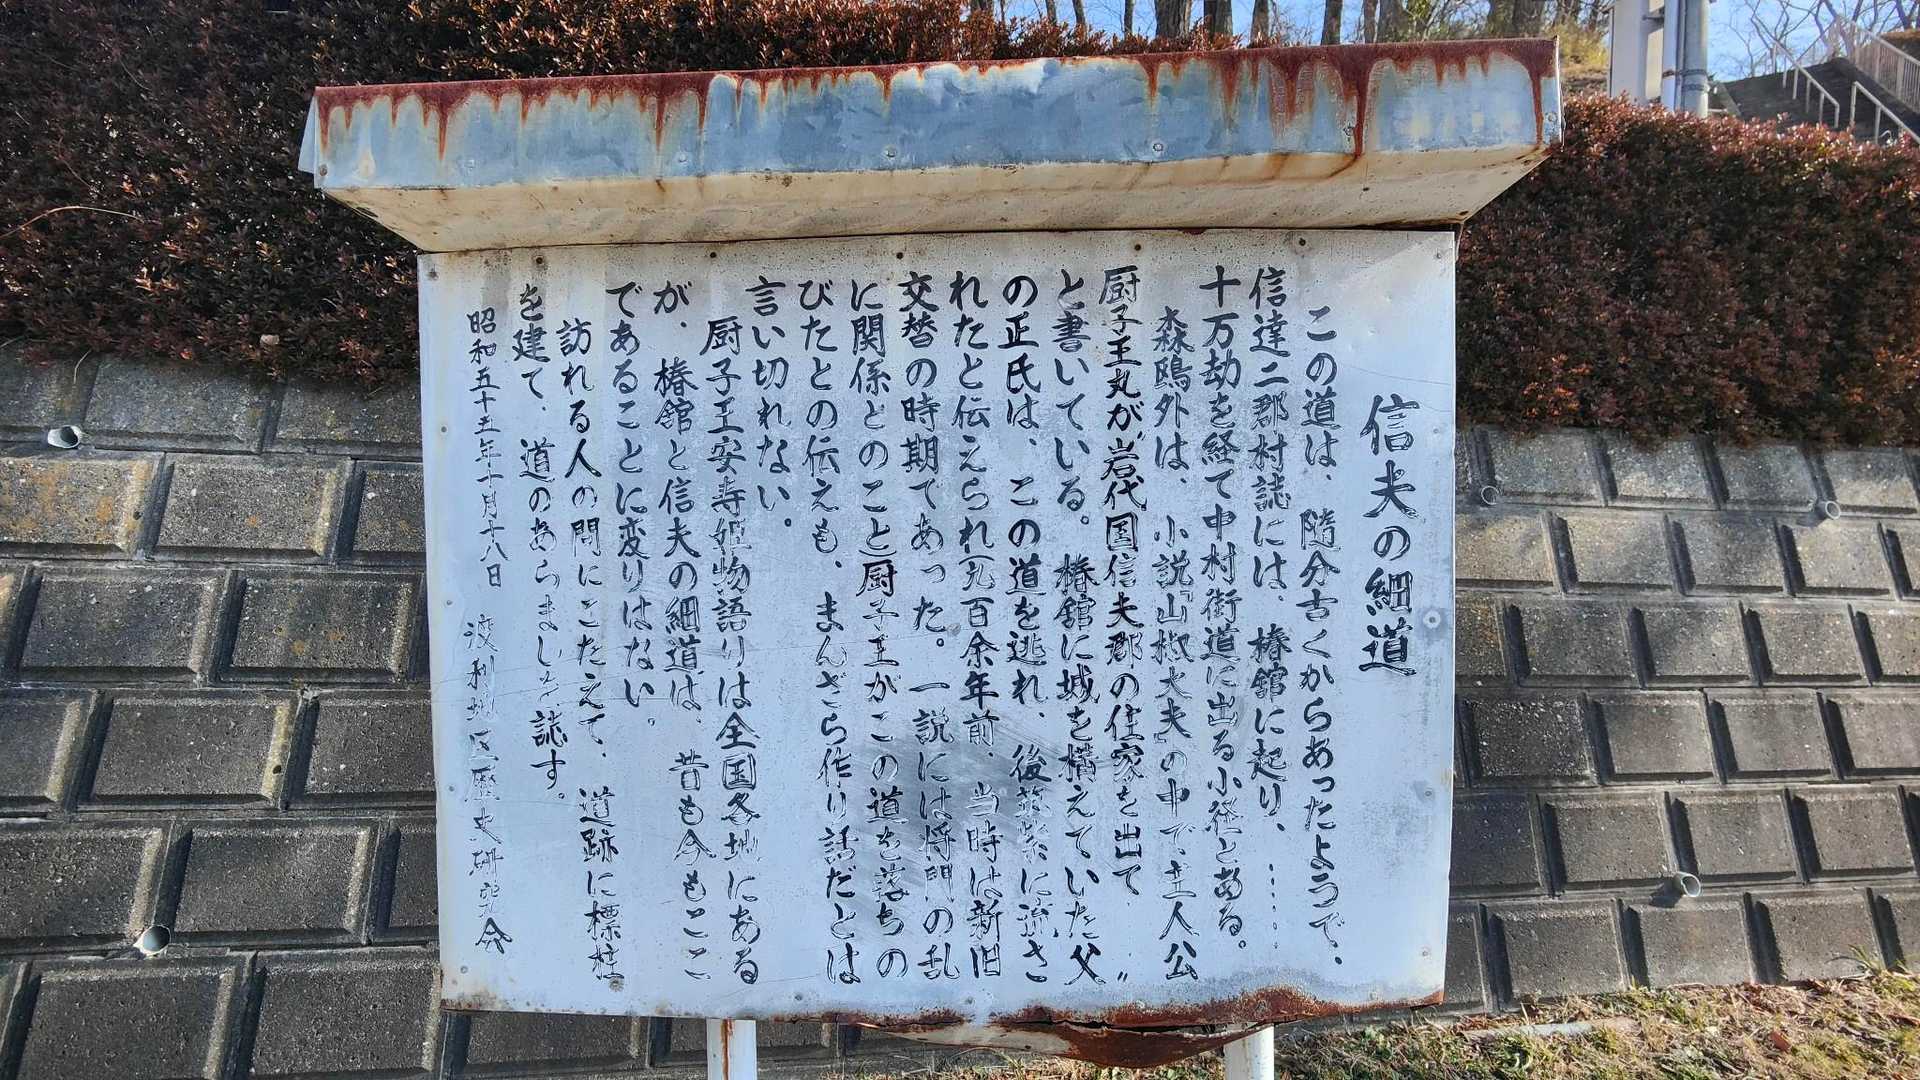 信夫の細道
この道は、随分古くからあったようで、
信達二郡村誌には、椿舘に起り、……
十万劫を経て中村街道に出る小径とある。
森鴎外は、小説「山椒大夫」の中で主人公
厨子王丸が"岩代国信夫郡の住家を出て…"
と書いている。椿舘に城を構えていた父
の正氏は、この道を逃れ、後筑紫に流さ
れたと伝えられ(九百余年前、当時は新旧
交替の時期であった。一説には将門の乱
に関係とのこと)厨子王がこの道を落ちの
びたとの伝えも、まんざら作り話だとは
言い切れない。
厨子王安寿姫物語りは全国各地にある
が、椿舘と信夫の細道は、昔も今もここ
であることに変りはない。
訪れる人の問にこたえて、道跡に標柱
を建て、道のあらましを誌す。
昭和五十五年十月十八日 渡利地区歴史研究会